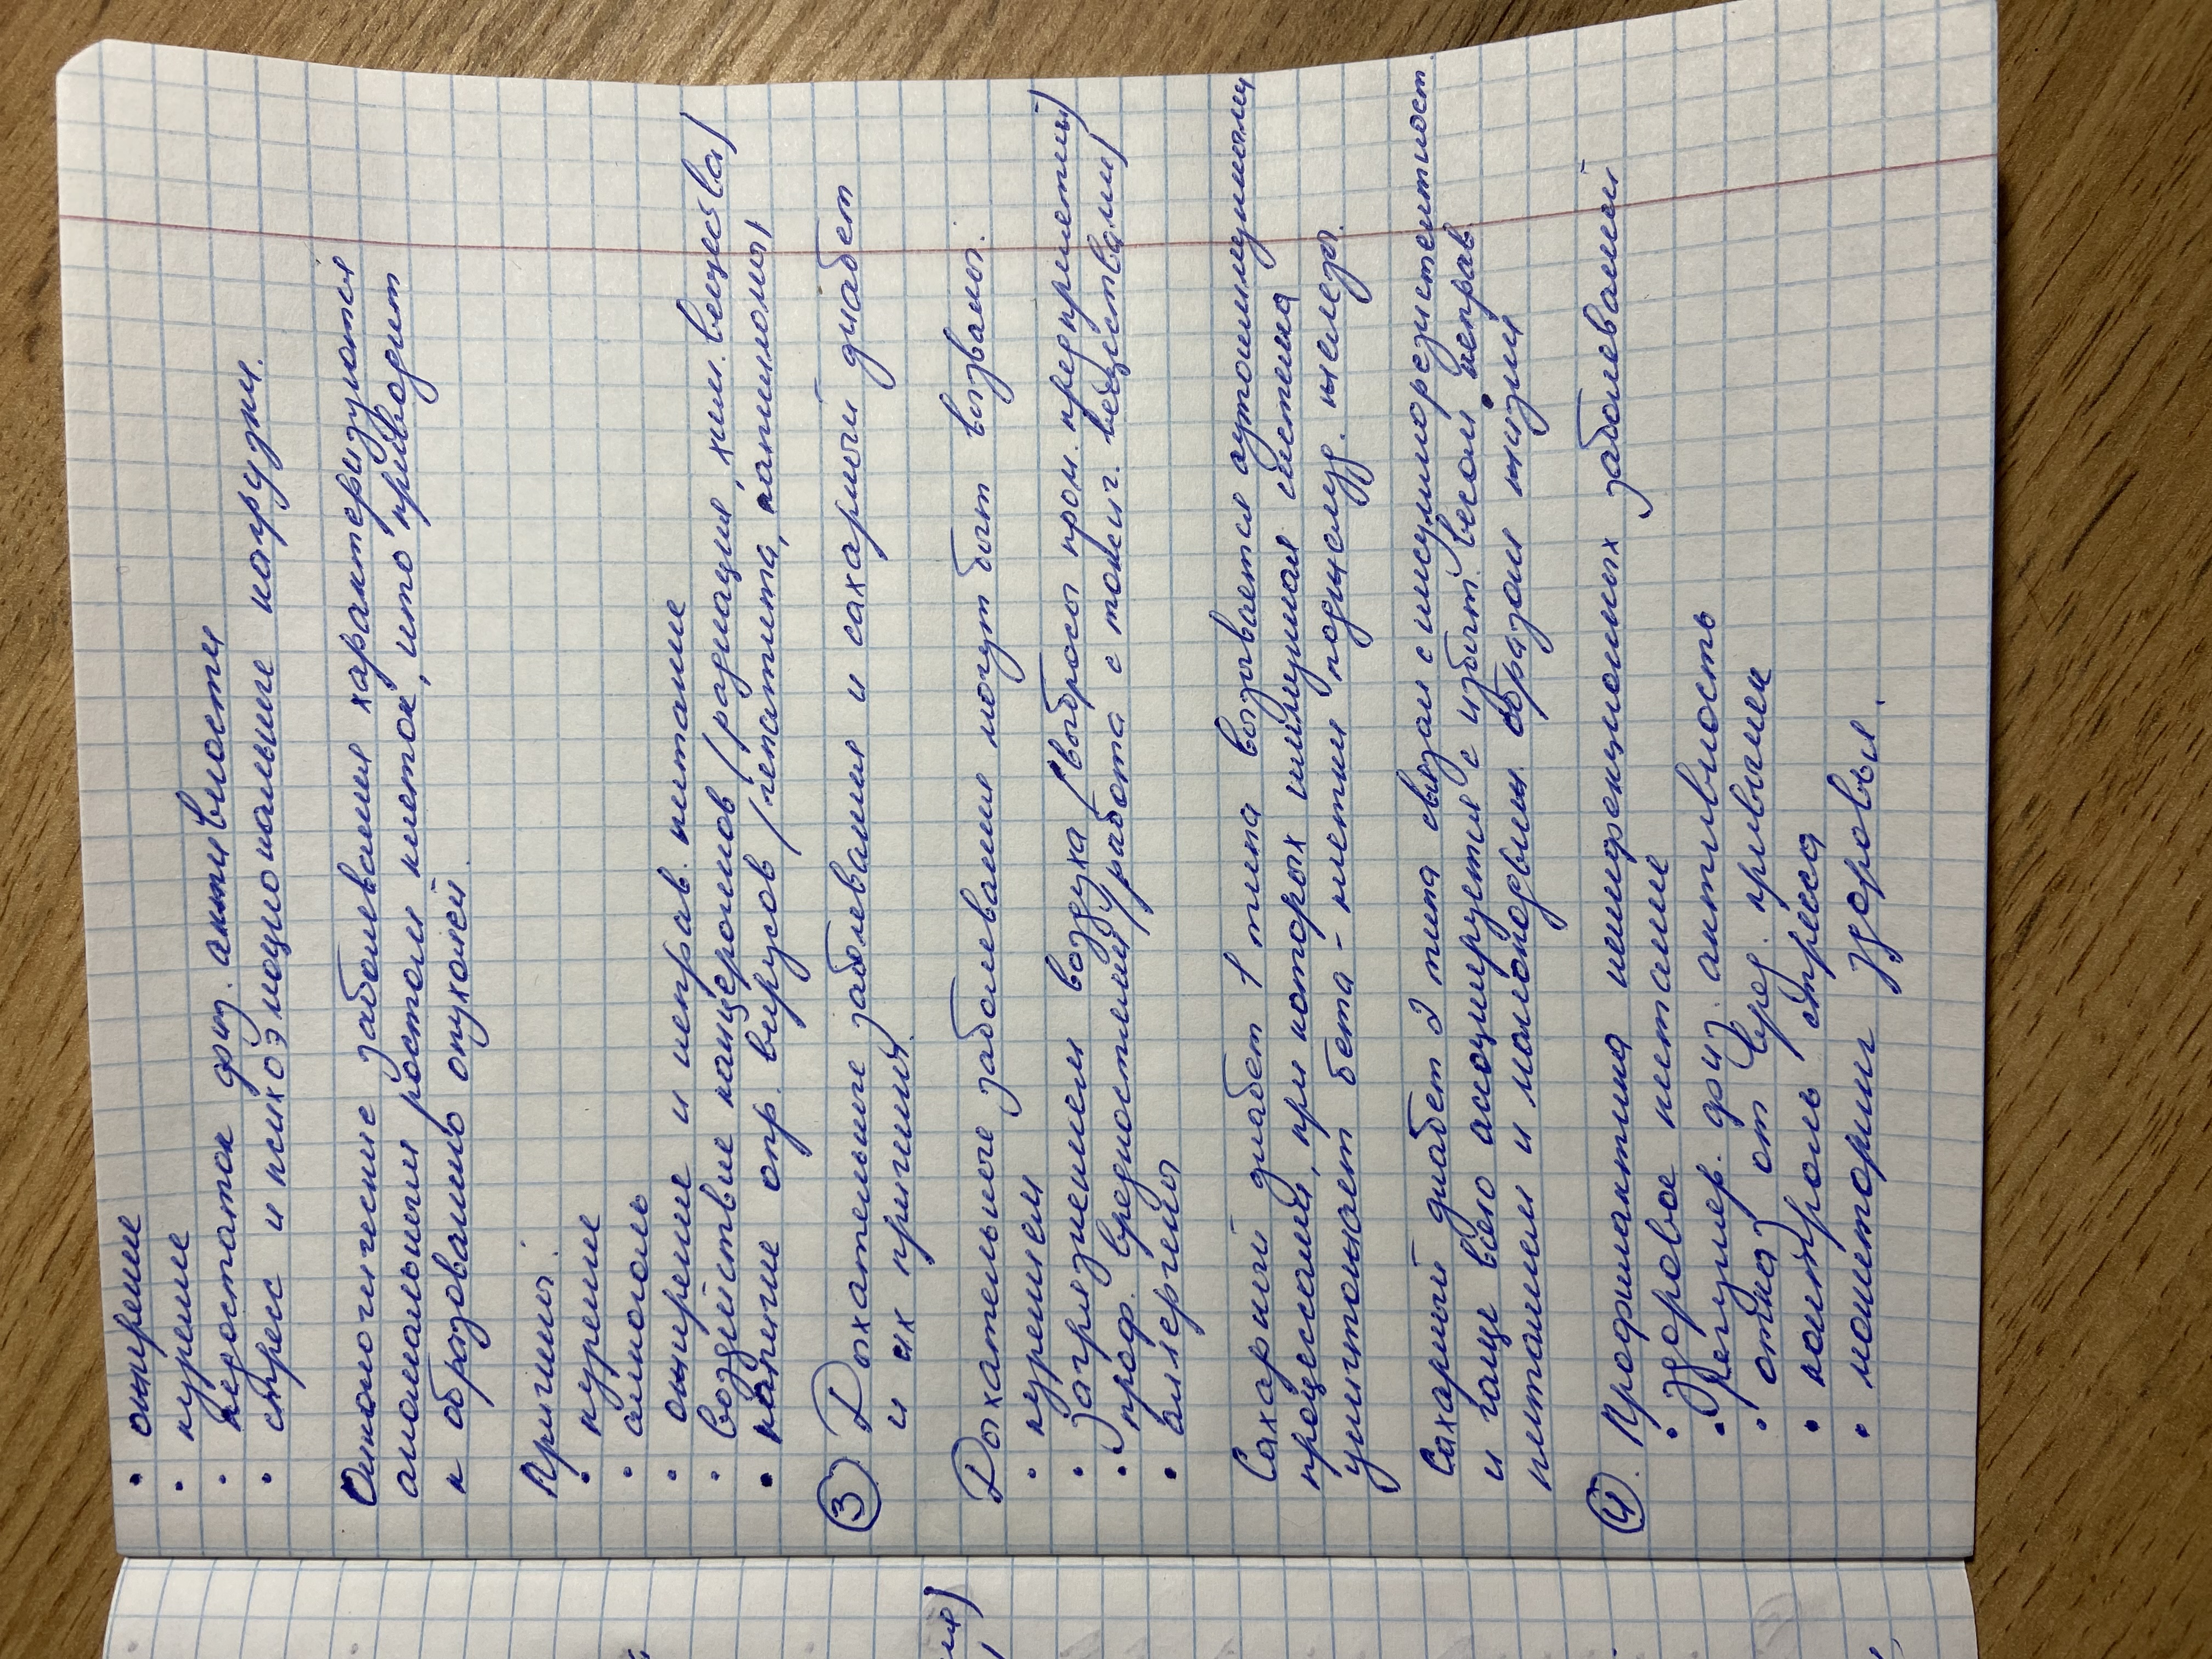 • ожирение
• курение
• недостаток физ. активности
• стресс и психоэмоциональные нагрузки.
Онкологические заболевания характеризуются
аномальным ростом клеток, что приводит
к образованию опухолей.
Причины:
• курение
• алкоголь
• ожирение и неправ. питание
• воздействие канцерогенов (радиация, хим. вещества)
• наличие опр. вирусов (гепатита, папилломы)
3. Дыхательные заболевания и сахарный диабет
и их причины.
Дыхательные заболевания могут быть вызваны:
• курением
• загрязнением воздуха (выбросы пром. предприятий)
• проф. вредностями (работа с токсич. веществами)
• аллергены
Сахарный диабет 1 типа вызывается аутоиммунными
процессами, при которых иммунная система
уничтожает бета-клетки поджелуд. железы.
Сахарный диабет 2 типа связан с инсулинорезистентност
и чаще всего ассоциируется с избыт. весом, неправ.
питанием и малоподвижн. образом жизни
4. Профилактика неинфекционных заболеваний
• здоровое питание
• Регуляр. физ. активность
• отказ от вред. привычек
• контроль стресса
• мониторинг здоровья.